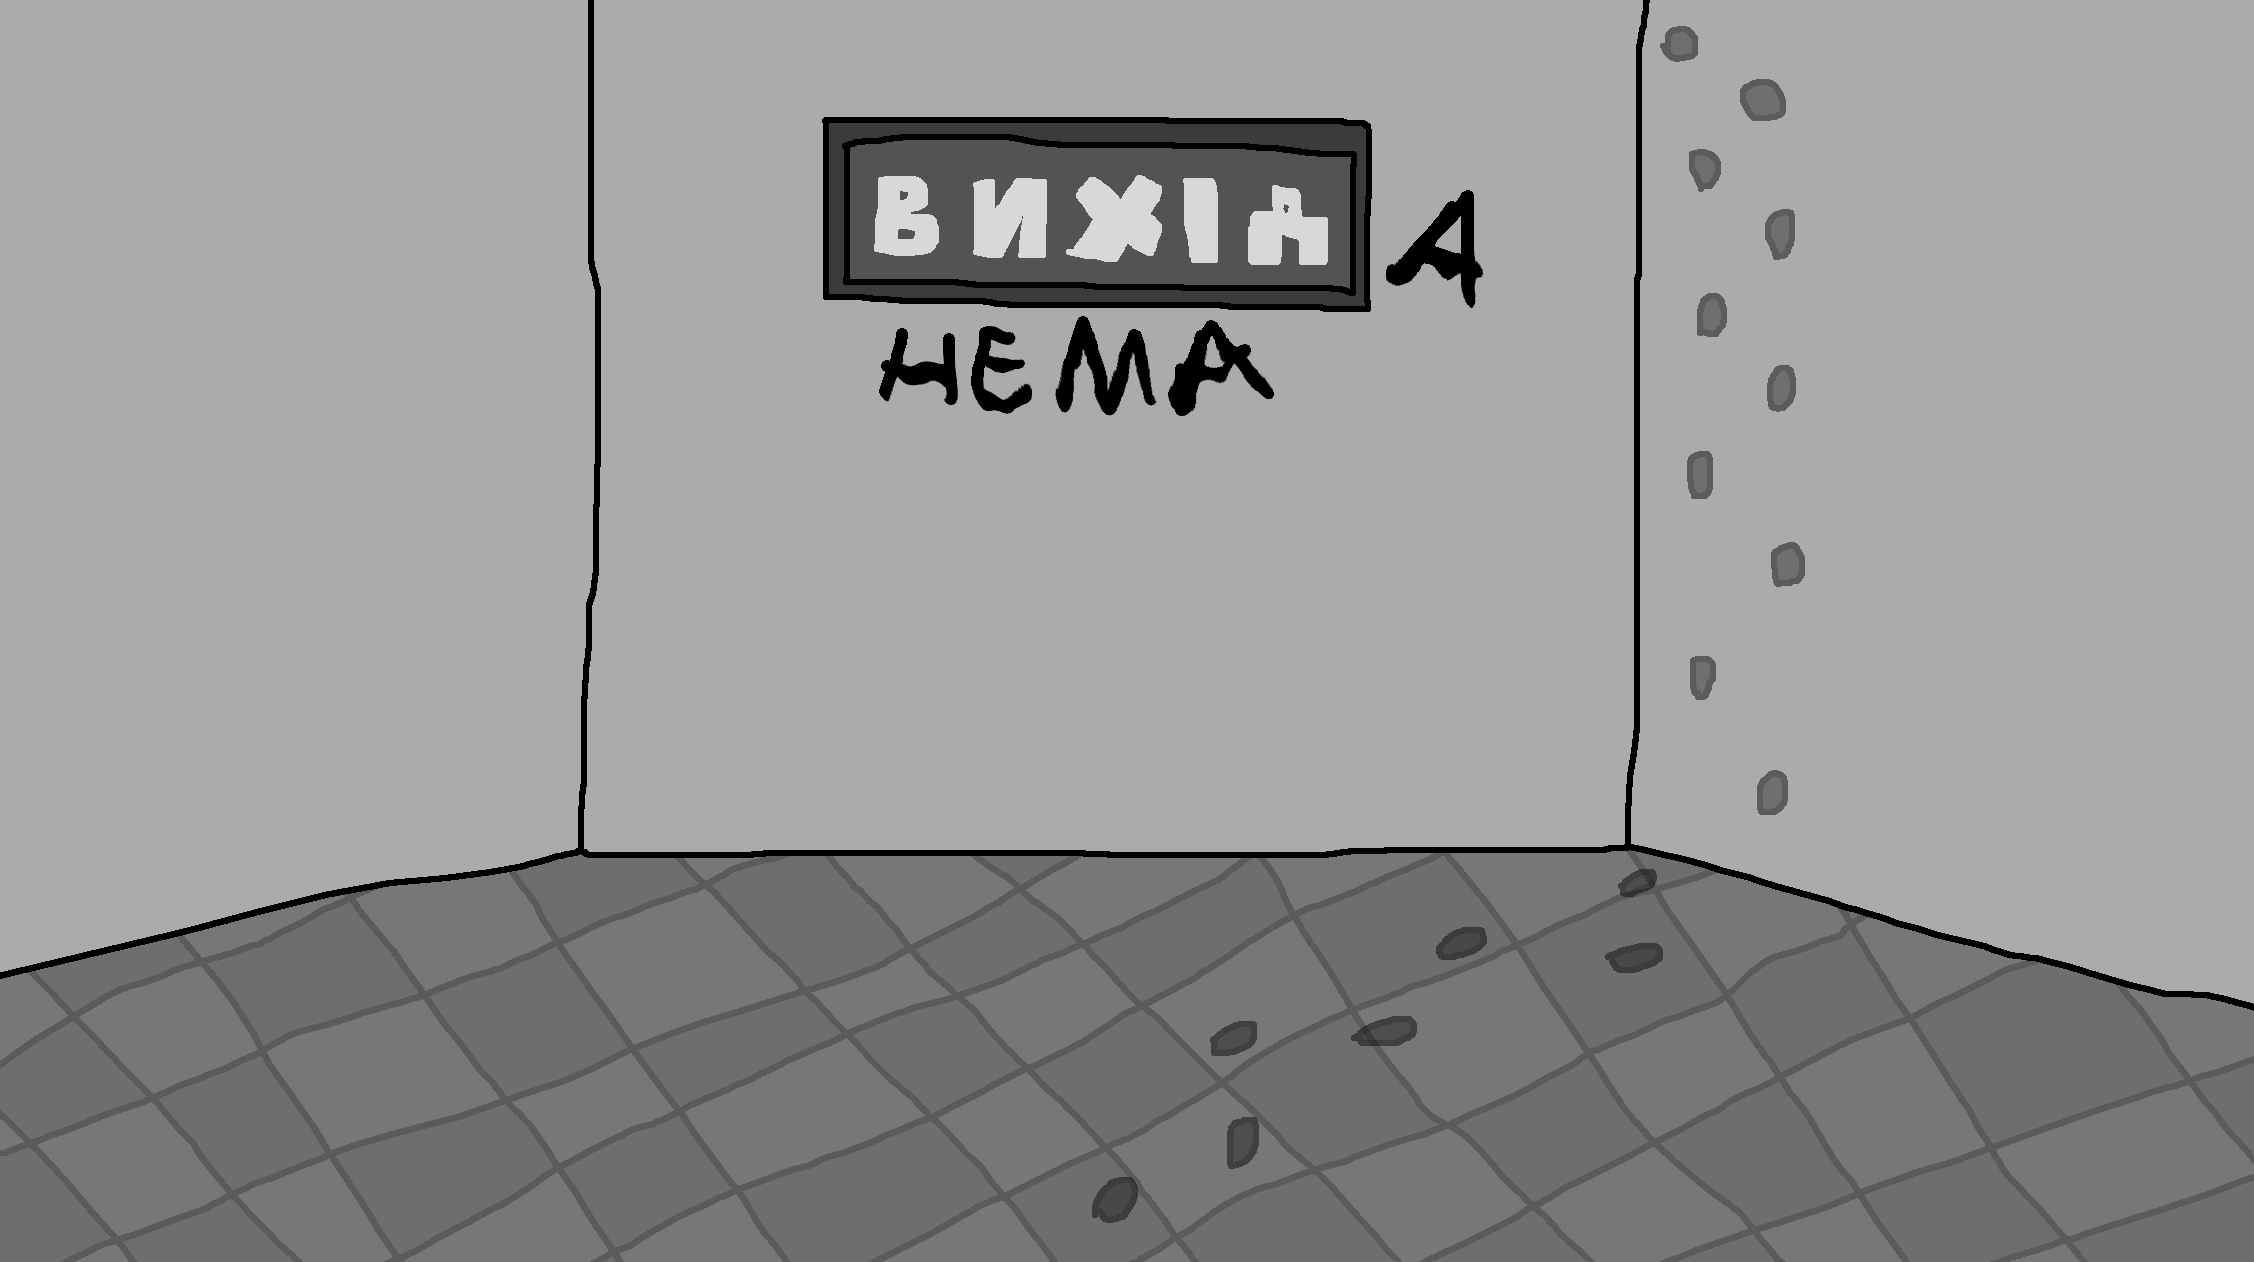 ВИХІД А
НЕМА